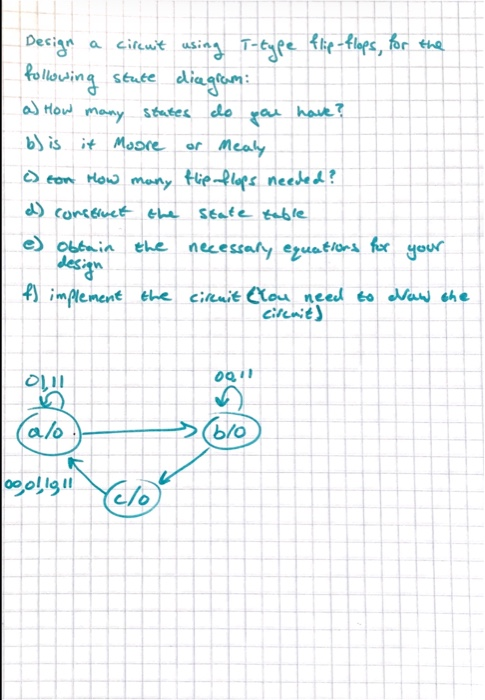 Design a circuit using T-type flip-flops, for the
following state diagram:
a) How many states do you have?
b) is it Moore or Mealy
c) How many flip-flops needed?
d) construct the state table
e) obtain the necessary equations for your
design
f) implement the circuit (You need to draw the
circuit)
01,11
00,11
a/0
b/0
00,01,10,11
c/0